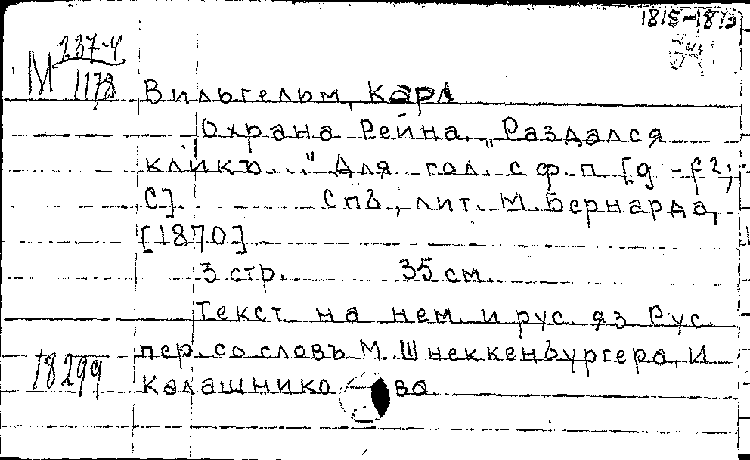 1815-1873
М 237-4
1178
Вильгельм, Карл
Охрана Рейна. „Раздался
кликъ..." Для гол. с ф.-п. [g - f2,
С]. Спб, лит. М. Бернарда,
[1870]
3 стр. 35 см.
Текст на нем. и рус. яз. Рус.
пер. со словъ М. Шнеккенбургера И.
18299
Калашникова